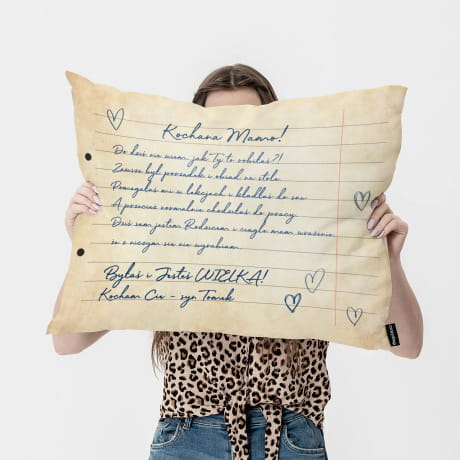 Kochana Mamo!
Do dziś nie wiem jak Ty to robiłaś?!
Zawsze był porządek i obiad na stole.
Pomagałaś mi w lekcjach i kładłaś do snu
A przecież normalnie chodziłaś do pracy.
Dziś sam jestem Rodzicem i ciągle mam wrażenie
że z niczym się nie wyrabiam.
Byłaś i Jesteś WIELKA!
Kocham Cię - syn Tomek